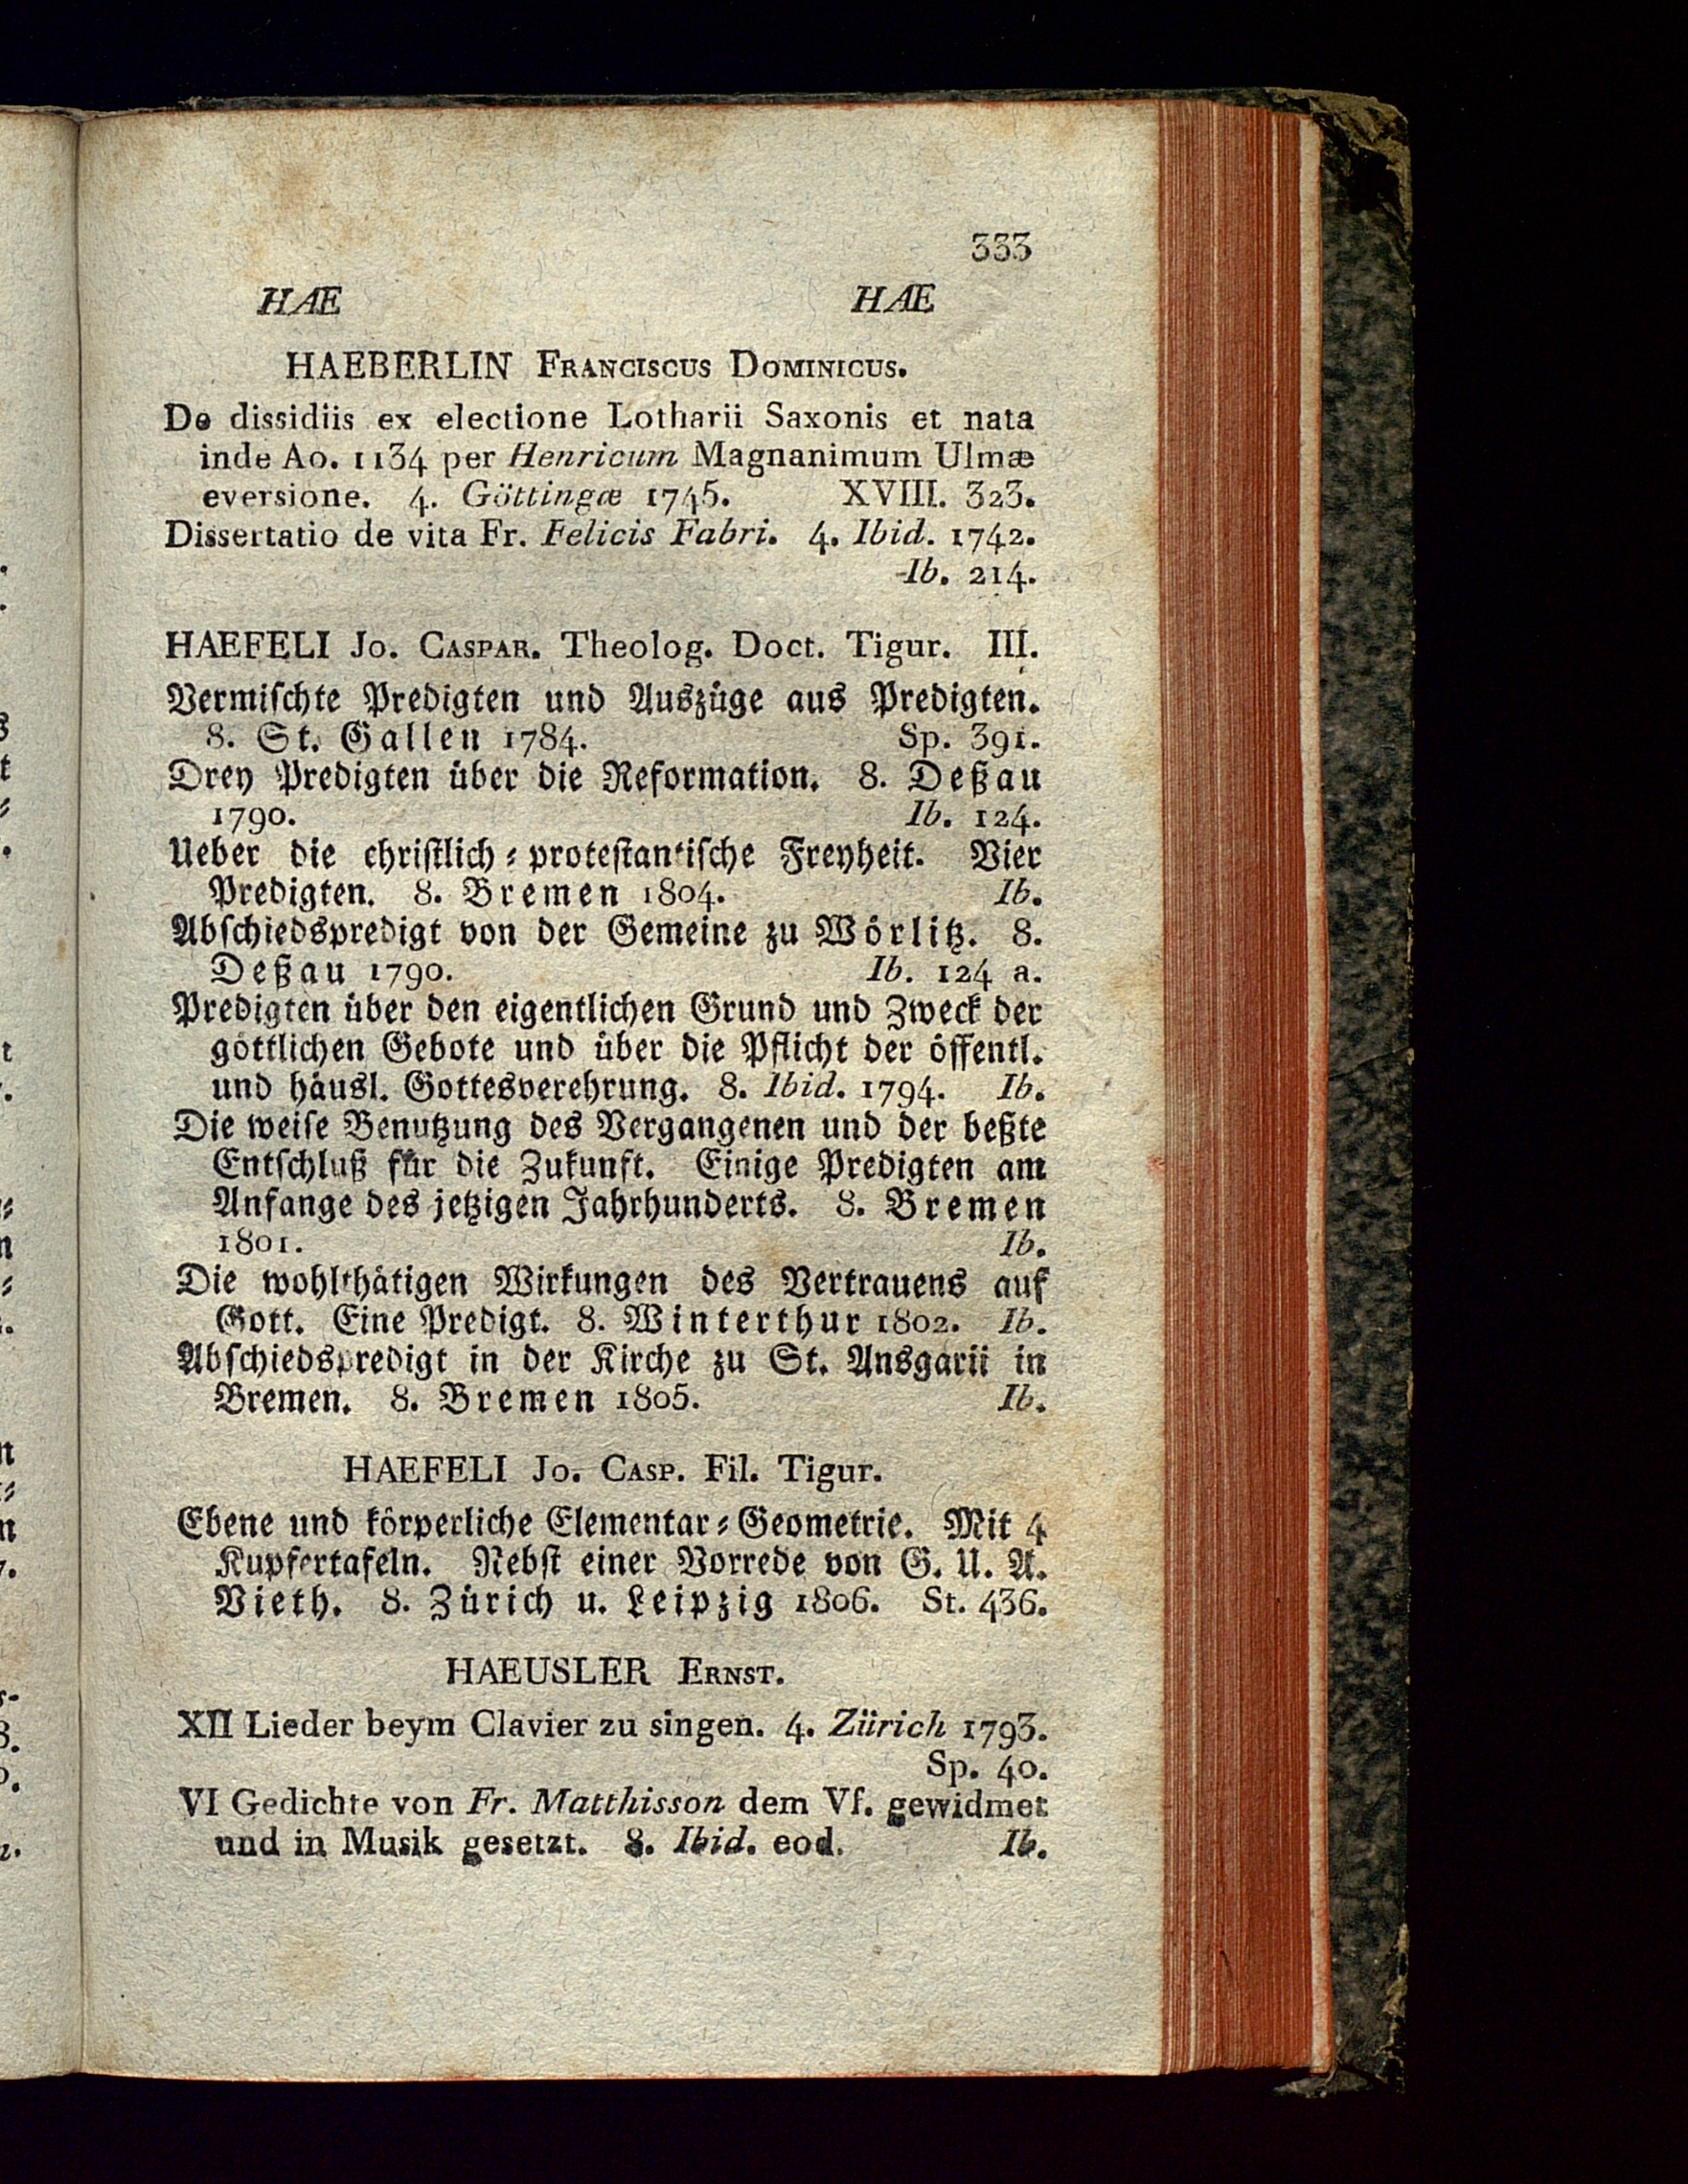 333
HAE HAE
HAEBERLIN FRANCISCUS DOMINICUS.
De dissidiis ex electione Lotharii Saxonis et nata
inde Ao. 1134 per Henricum Magnanimum Ulmæ
eversione. 4. Göttingæ 1745. XVIII. 323.
Dissertatio de vita Fr. Felicis Fabri. 4. Ibid. 1742.
Ib. 214.
HAEFELI JO. CASPAR. Theolog. Doct. Tigur. III.
Vermischte Predigten und Auszüge aus Predigten.
8. St. Gallen 1784. Sp. 391.
Drey Predigten über die Reformation. 8. Deßau
1790. Ib. 124.
Ueber die christlich-protestantische Freyheit. Vier
Predigten. 8. Bremen 1804. Ib.
Abschiedspredigt von der Gemeine zu Wörlitz. 8.
Deßau 1790. Ib. 124 a.
Predigten über den eigentlichen Grund und Zweck der
göttlichen Gebote und über die Pflicht der öffentl.
und häusl. Gottesverehrung. 8. Ibid. 1794. Ib.
Die weise Benutzung des Vergangenen und der beßte
Entschluß für die Zukunft. Einige Predigten am
Anfange des jetzigen Jahrhunderts. 8. Bremen
1801. Ib.
Die wohlthätigen Wirkungen des Vertrauens auf
Gott. Eine Predigt. 8. Winterthur 1802. Ib.
Abschiedspredigt in der Kirche zu St. Ansgarii in
Bremen. 8. Bremen 1805. Ib.
HAEFELI JO. CASP. Fil. Tigur.
Ebene und körperliche Elementar-Geometrie. Mit 4
Kupfertafeln. Nebst einer Vorrede von G. U. A.
Vieth. 8. Zürich u. Leipzig 1806. St. 436.
HAEUSLER ERNST.
XII Lieder beym Clavier zu singen. 4. Zürich 1793.
Sp. 40.
VI Gedichte von Fr. Matthisson dem Vf. gewidmet
und in Musik gesetzt. 8. Ibid. eod. Ib.